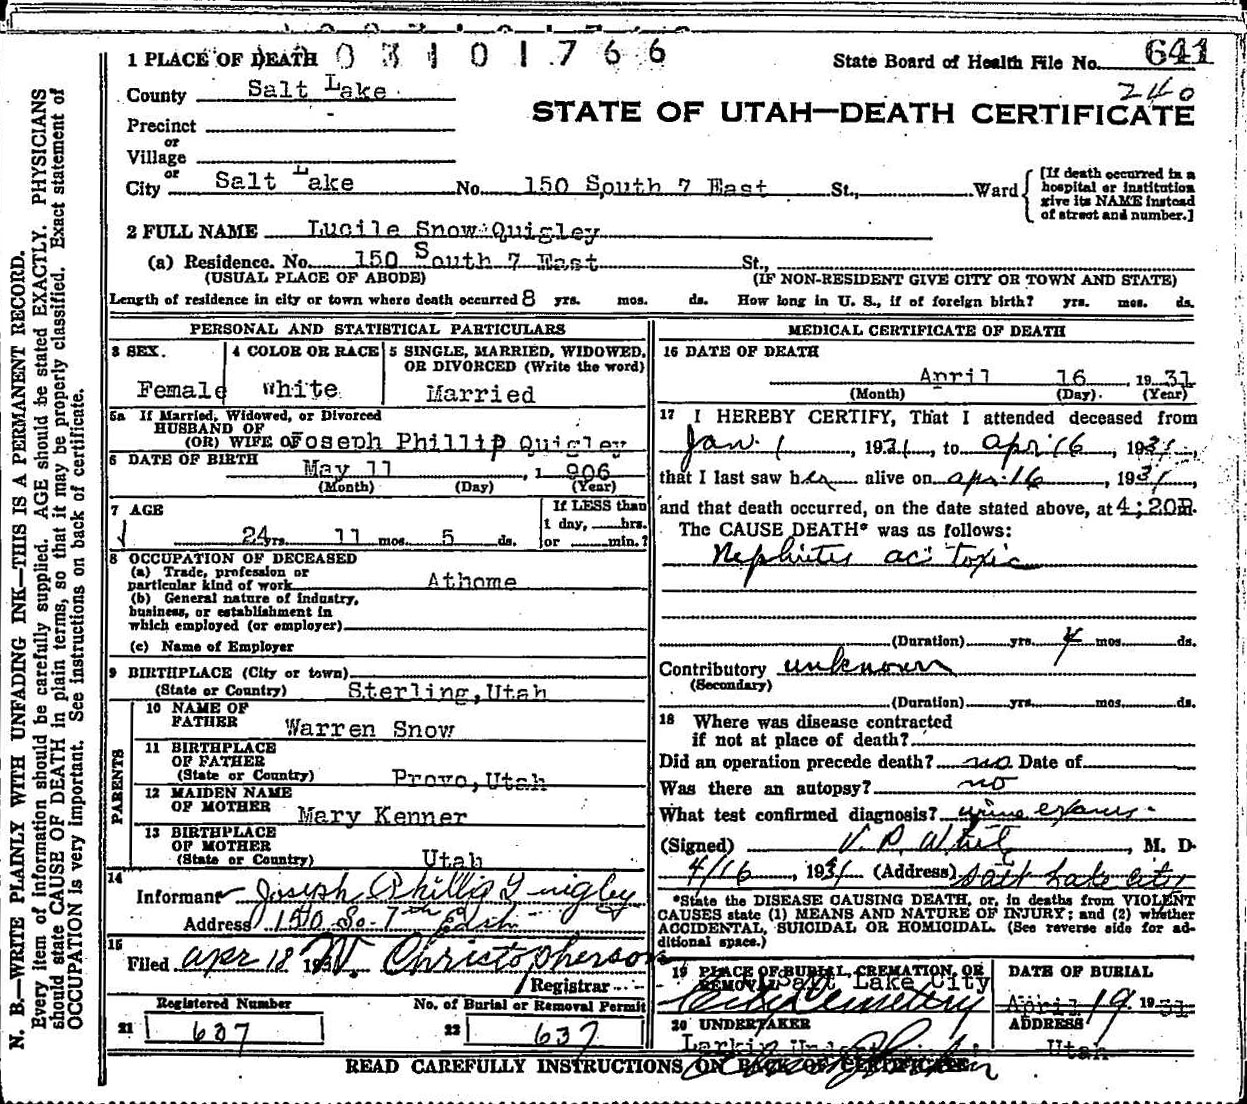 1 PLACE OF DEATH 03101766
State Board of Health File No. 641
240
County Salt Lake
STATE OF UTAH—DEATH CERTIFICATE
Precinct
or
Village
or
City Salt Lake No. 150 South 7 East St., Ward
[If death occurred in a hospital or institution give its NAME instead of street and number.]
2 FULL NAME Lucile Snow Quigley
(a) Residence. No. 150 South 7 East St.,
(USUAL PLACE OF ABODE) (IF NON-RESIDENT GIVE CITY OR TOWN AND STATE)
Length of residence in city or town where death occurred 8 yrs. mos. ds. How long in U. S., if of foreign birth? yrs. mos. ds.
PERSONAL AND STATISTICAL PARTICULARS
3 SEX.
Female
4 COLOR OR RACE
White
5 SINGLE, MARRIED, WIDOWED,
OR DIVORCED (Write the word)
Married
5a If Married, Widowed, or Divorced
HUSBAND OF
(OR) WIFE OF Joseph Phillip Quigley
6 DATE OF BIRTH
May 11, 1 906
(Month) (Day) (Year)
7 AGE
24 yrs. 11 mos. 5 ds.
If LESS than
1 day, hrs.
or min.?
8 OCCUPATION OF DECEASED
(a) Trade, profession or
particular kind of work Athome
(b) General nature of industry,
business, or establishment in
which employed (or employer)
(c) Name of Employer
9 BIRTHPLACE (City or town)
(State or Country) Sterling, Utah
PARENTS
10 NAME OF
FATHER Warren Snow
11 BIRTHPLACE
OF FATHER
(State or Country) Provo, Utah
12 MAIDEN NAME
OF MOTHER Mary Kenner
13 BIRTHPLACE
OF MOTHER
(State or Country) Utah
14
Informant Joseph Phillip Quigley
Address 150 So. 7th East
15
Filed Apr 18 193 Christopherson
Registrar
Registered Number No. of Burial or Removal Permit
21 637 22 637
MEDICAL CERTIFICATE OF DEATH
16 DATE OF DEATH
April 16, 19 31
(Month) (Day). (Year)
17 I HEREBY CERTIFY, That I attended deceased from
Jan. 1, 1931, to Apr 16, 1931,
that I last saw her alive on Apr. 16, 1931,
and that death occurred, on the date stated above, at 4:20P.
The CAUSE DEATH* was as follows:
Nephritis ac toxic
(Duration) yrs. 4 mos. ds.
Contributory unknown
(Secondary)
(Duration) yrs. mos. ds.
18 Where was disease contracted
if not at place of death?
Did an operation precede death? no Date of
Was there an autopsy? no
What test confirmed diagnosis? urine exam.
(Signed) V. P. White, M. D.
4/16, 1931 (Address) Salt Lake City
*State the DISEASE CAUSING DEATH, or, in deaths from VIOLENT
CAUSES state (1) MEANS AND NATURE OF INJURY; and (2) whether
ACCIDENTAL, SUICIDAL OR HOMICIDAL. (See reverse side for ad-
ditional space.)
19 PLACE OF BURIAL, CREMATION, OR
REMOVAL Salt Lake City
City Cemetery
DATE OF BURIAL
April 19 19 31
20 UNDERTAKER
Larkin
ADDRESS
Utah
READ CAREFULLY INSTRUCTIONS ON BACK OF CERTIFICATE
N. B.—WRITE PLAINLY WITH UNFADING INK—THIS IS A PERMANENT RECORD.
Every item of information should be carefully supplied. AGE should be stated EXACTLY. PHYSICIANS
should state CAUSE OF DEATH in plain terms, so that it may be properly classified. Exact statement of
OCCUPATION is very important. See instructions on back of certificate.